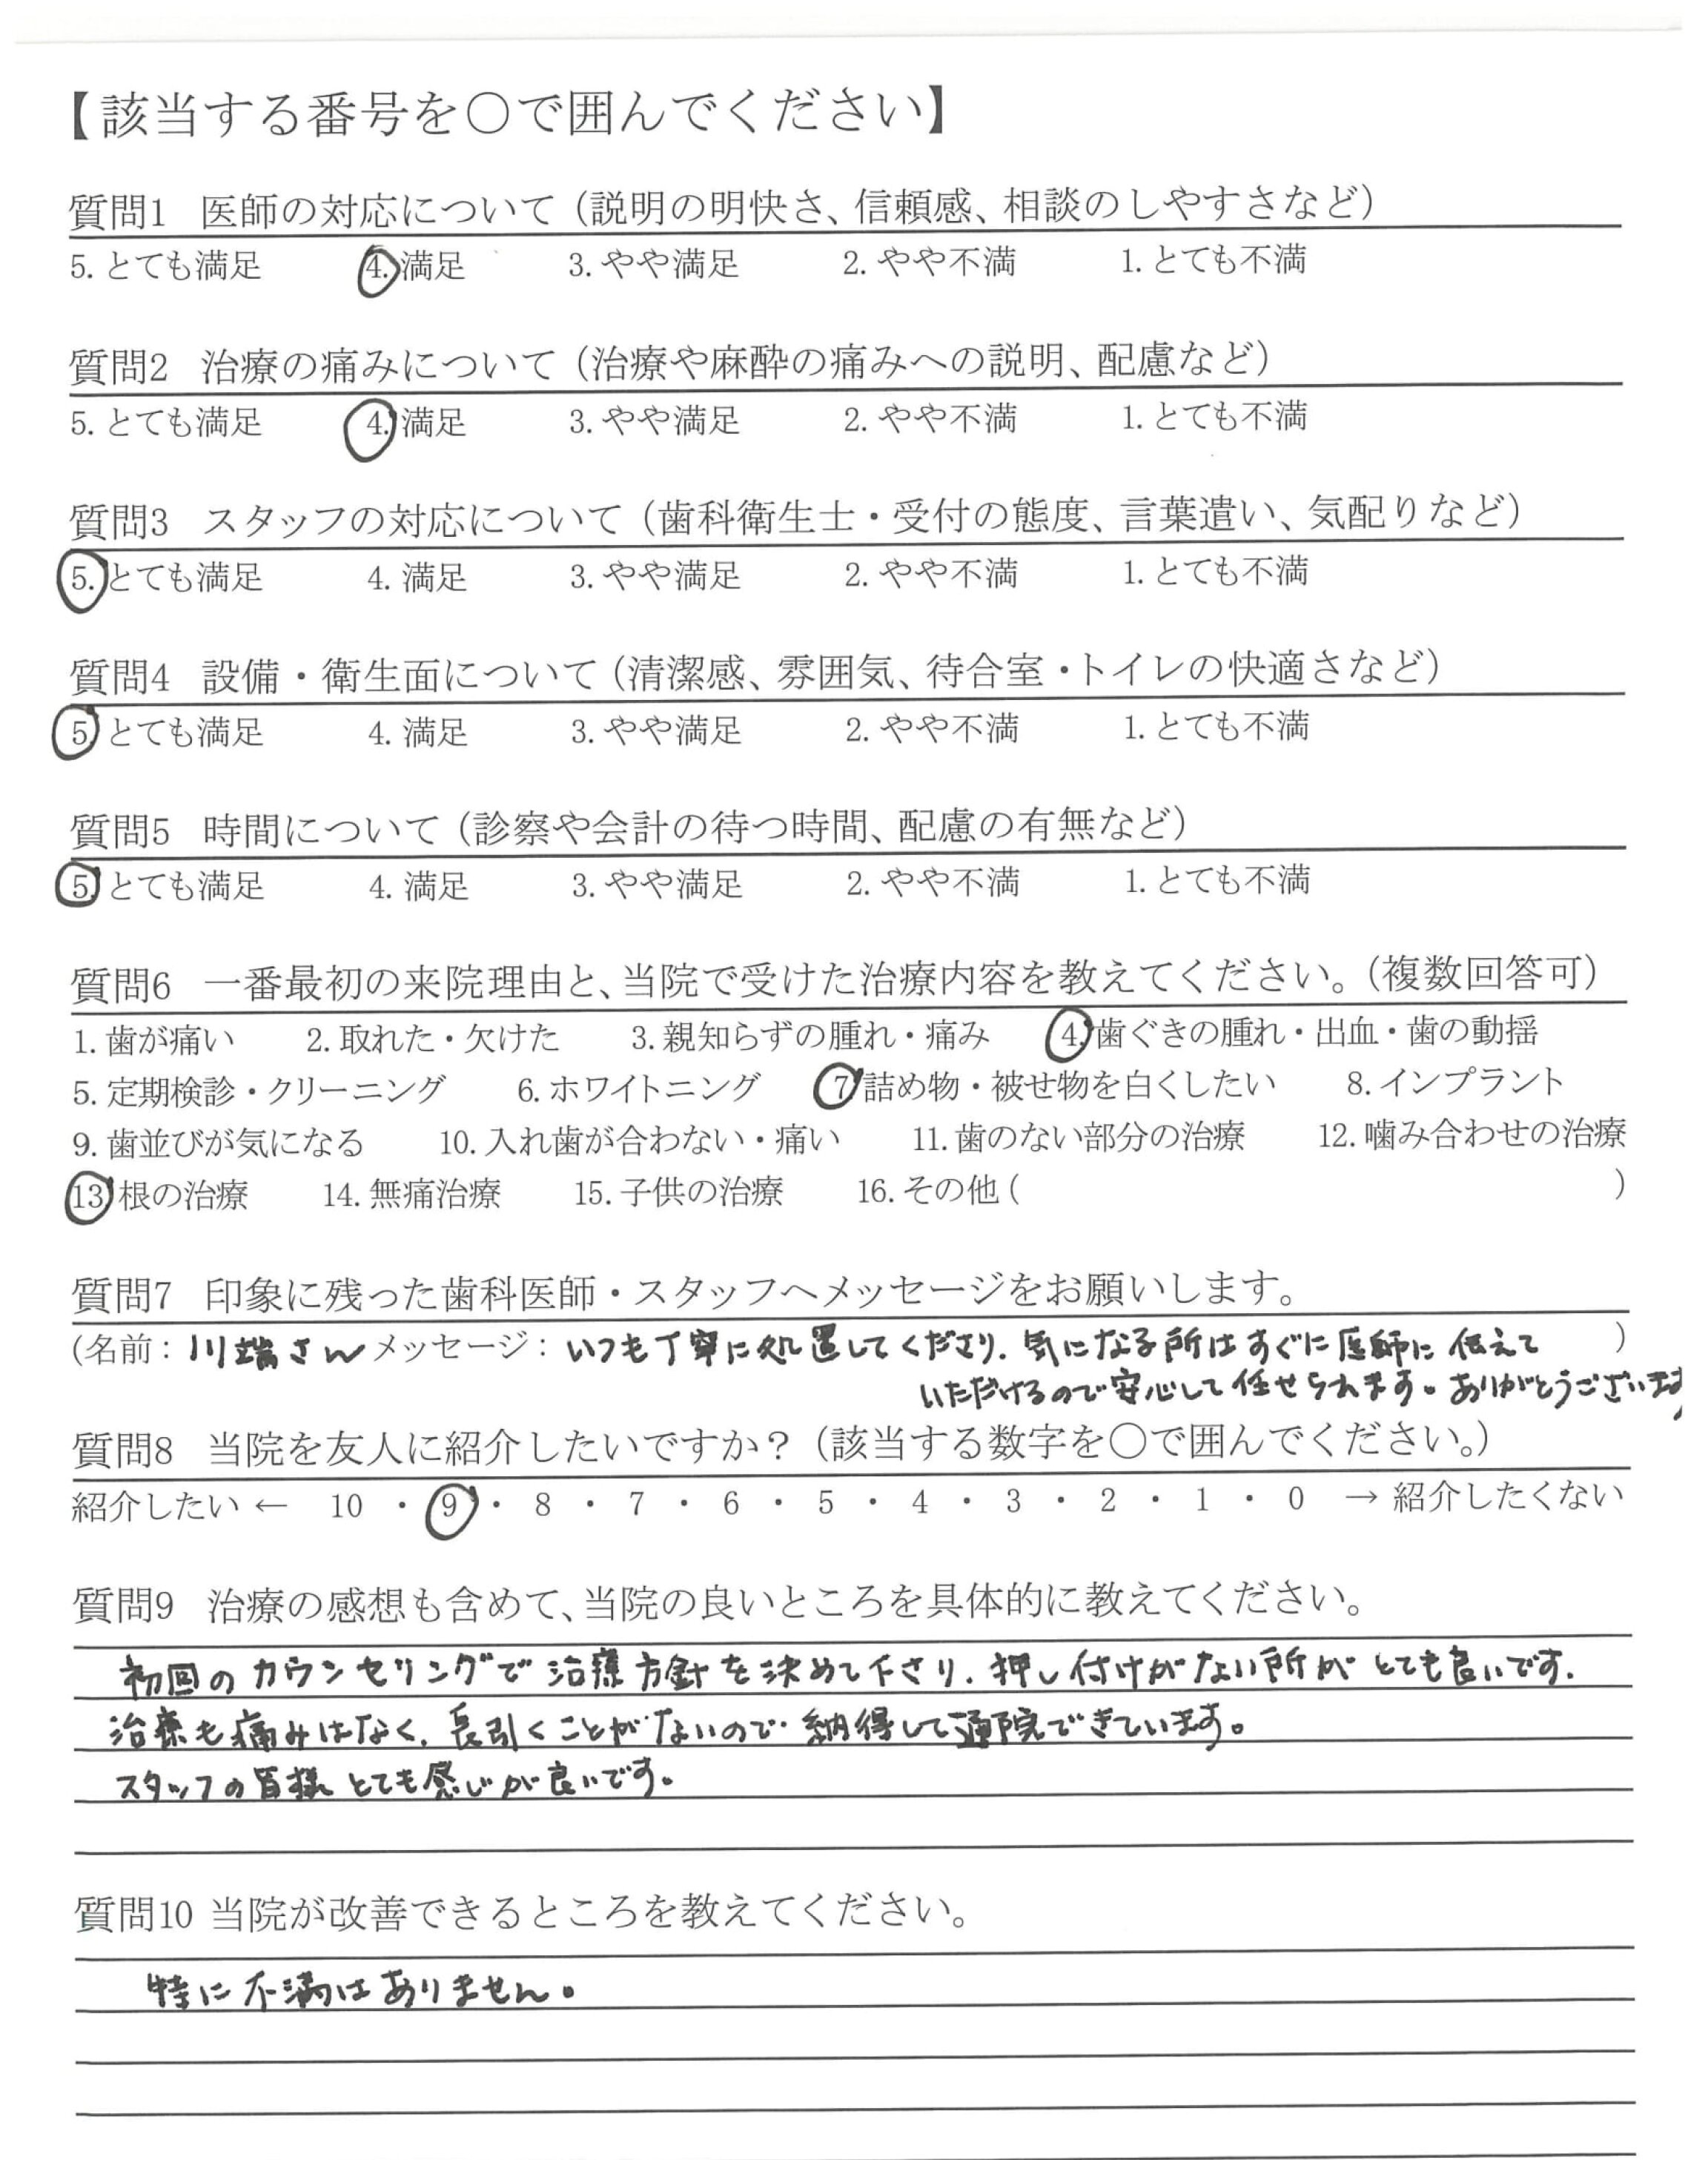 【該当する番号を〇で囲んでください】
質問1 医師の対応について（説明の明快さ、信頼感、相談のしやすさなど）
5. とても満足 4. 満足 3. やや満足 2. やや不満 1. とても不満
質問2 治療の痛みについて（治療や麻酔の痛みへの説明、配慮など）
5. とても満足 4. 満足 3. やや満足 2. やや不満 1. とても不満
質問3 スタッフの対応について（歯科衛生士・受付の態度、言葉遣い、気配りなど）
5. とても満足 4. 満足 3. やや満足 2. やや不満 1. とても不満
質問4 設備・衛生面について（清潔感、雰囲気、待合室・トイレの快適さなど）
5. とても満足 4. 満足 3. やや満足 2. やや不満 1. とても不満
質問5 時間について（診察や会計の待つ時間、配慮の有無など）
5. とても満足 4. 満足 3. やや満足 2. やや不満 1. とても不満
質問6 一番最初の来院理由と、当院で受けた治療内容を教えてください。（複数回答可）
1. 歯が痛い 2. 取れた・欠けた 3. 親知らずの腫れ・痛み 4. 歯ぐきの腫れ・出血・歯の動揺
5. 定期検診・クリーニング 6. ホワイトニング 7. 詰め物・被せ物を白くしたい 8. インプラント
9. 歯並びが気になる 10. 入れ歯が合わない・痛い 11. 歯のない部分の治療 12. 噛み合わせの治療
13. 根の治療 14. 無痛治療 15. 子供の治療 16. その他（ ）
質問7 印象に残った歯科医師・スタッフへメッセージをお願いします。
（名前：川端さん メッセージ：いつも丁寧に処置してくださり、気になる所はすぐに医師に伝えて ）
いただけるので安心して任せられます。ありがとうございます
質問8 当院を友人に紹介したいですか？（該当する数字を〇で囲んでください。）
紹介したい ← 10 ・ 9 ・ 8 ・ 7 ・ 6 ・ 5 ・ 4 ・ 3 ・ 2 ・ 1 ・ 0 → 紹介したくない
質問9 治療の感想も含めて、当院の良いところを具体的に教えてください。
初回のカウンセリングで治療方針を決めて下さり、押し付けがない所がとても良いです。
治療も痛みはなく、長引くことがないので納得して通院できています。
スタッフの皆様とても感じが良いです。
質問10 当院が改善できるところを教えてください。
特に不満はありません。